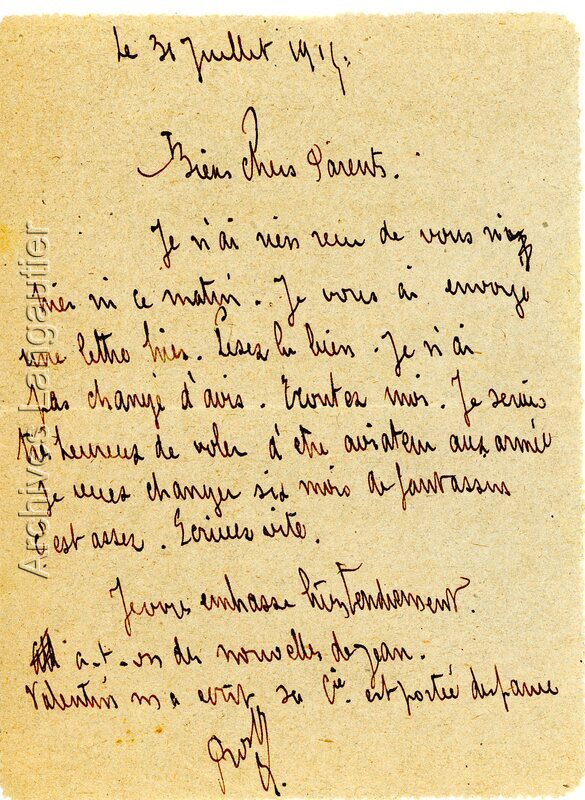 Le 31 Juillet 1915.
Biens chers Parents.
Je n'ai rien recu de vous ni
hier ni ce matin. Je vous ai envoyé
une lettre hier. Lisez la bien. Je n'ai
pas changé d'avis. Ecoutez moi. Je serais
très heureux de voler d'être aviateur aux armée
Je veux changer six mois de fantassins
c'est assez. Ecrivez vite.
Je vous embrasse bien tendrement.
a-t-on des nouvelles de Jean.
Valentin m'a écrit sa Cie est portée
Archives Langautier